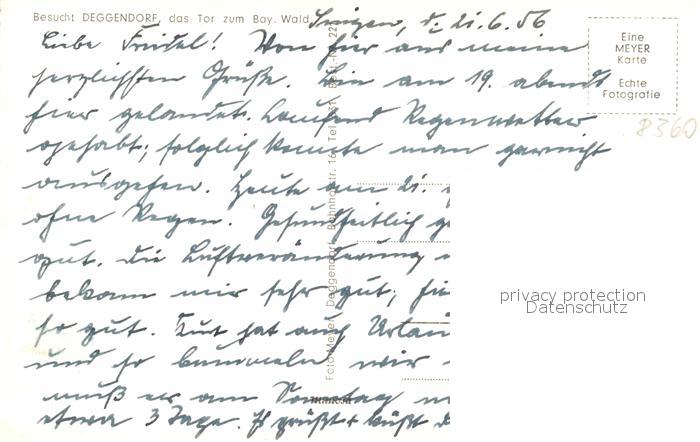 Besucht DEGGENDORF, das Tor zum Bay. Wald
d. 21.6.56
Eine
MEYER
Karte
Echte
Fotografie
8360
Liebe Friedel! Von hier aus meine
herzlichsten Grüße. Bin am 19. abends
hier gelandet. Laufend Regenwetter
gehabt; folglich konnte man garnicht
ausgehen. Heute am 21.
ohne Regen. Gesundheitlich
gut. Die Luftveränderung
bekam mir sehr gut;
so gut. Kurt hat auch Urlau
und so bummeln wir
muß er am Sonntag
etwa 3 Tage. Es grüßt + küßt
Foto-Meyer, Deggendorf, Bahnhofstr. 16, Tel.
privacy protection
Datenschutz